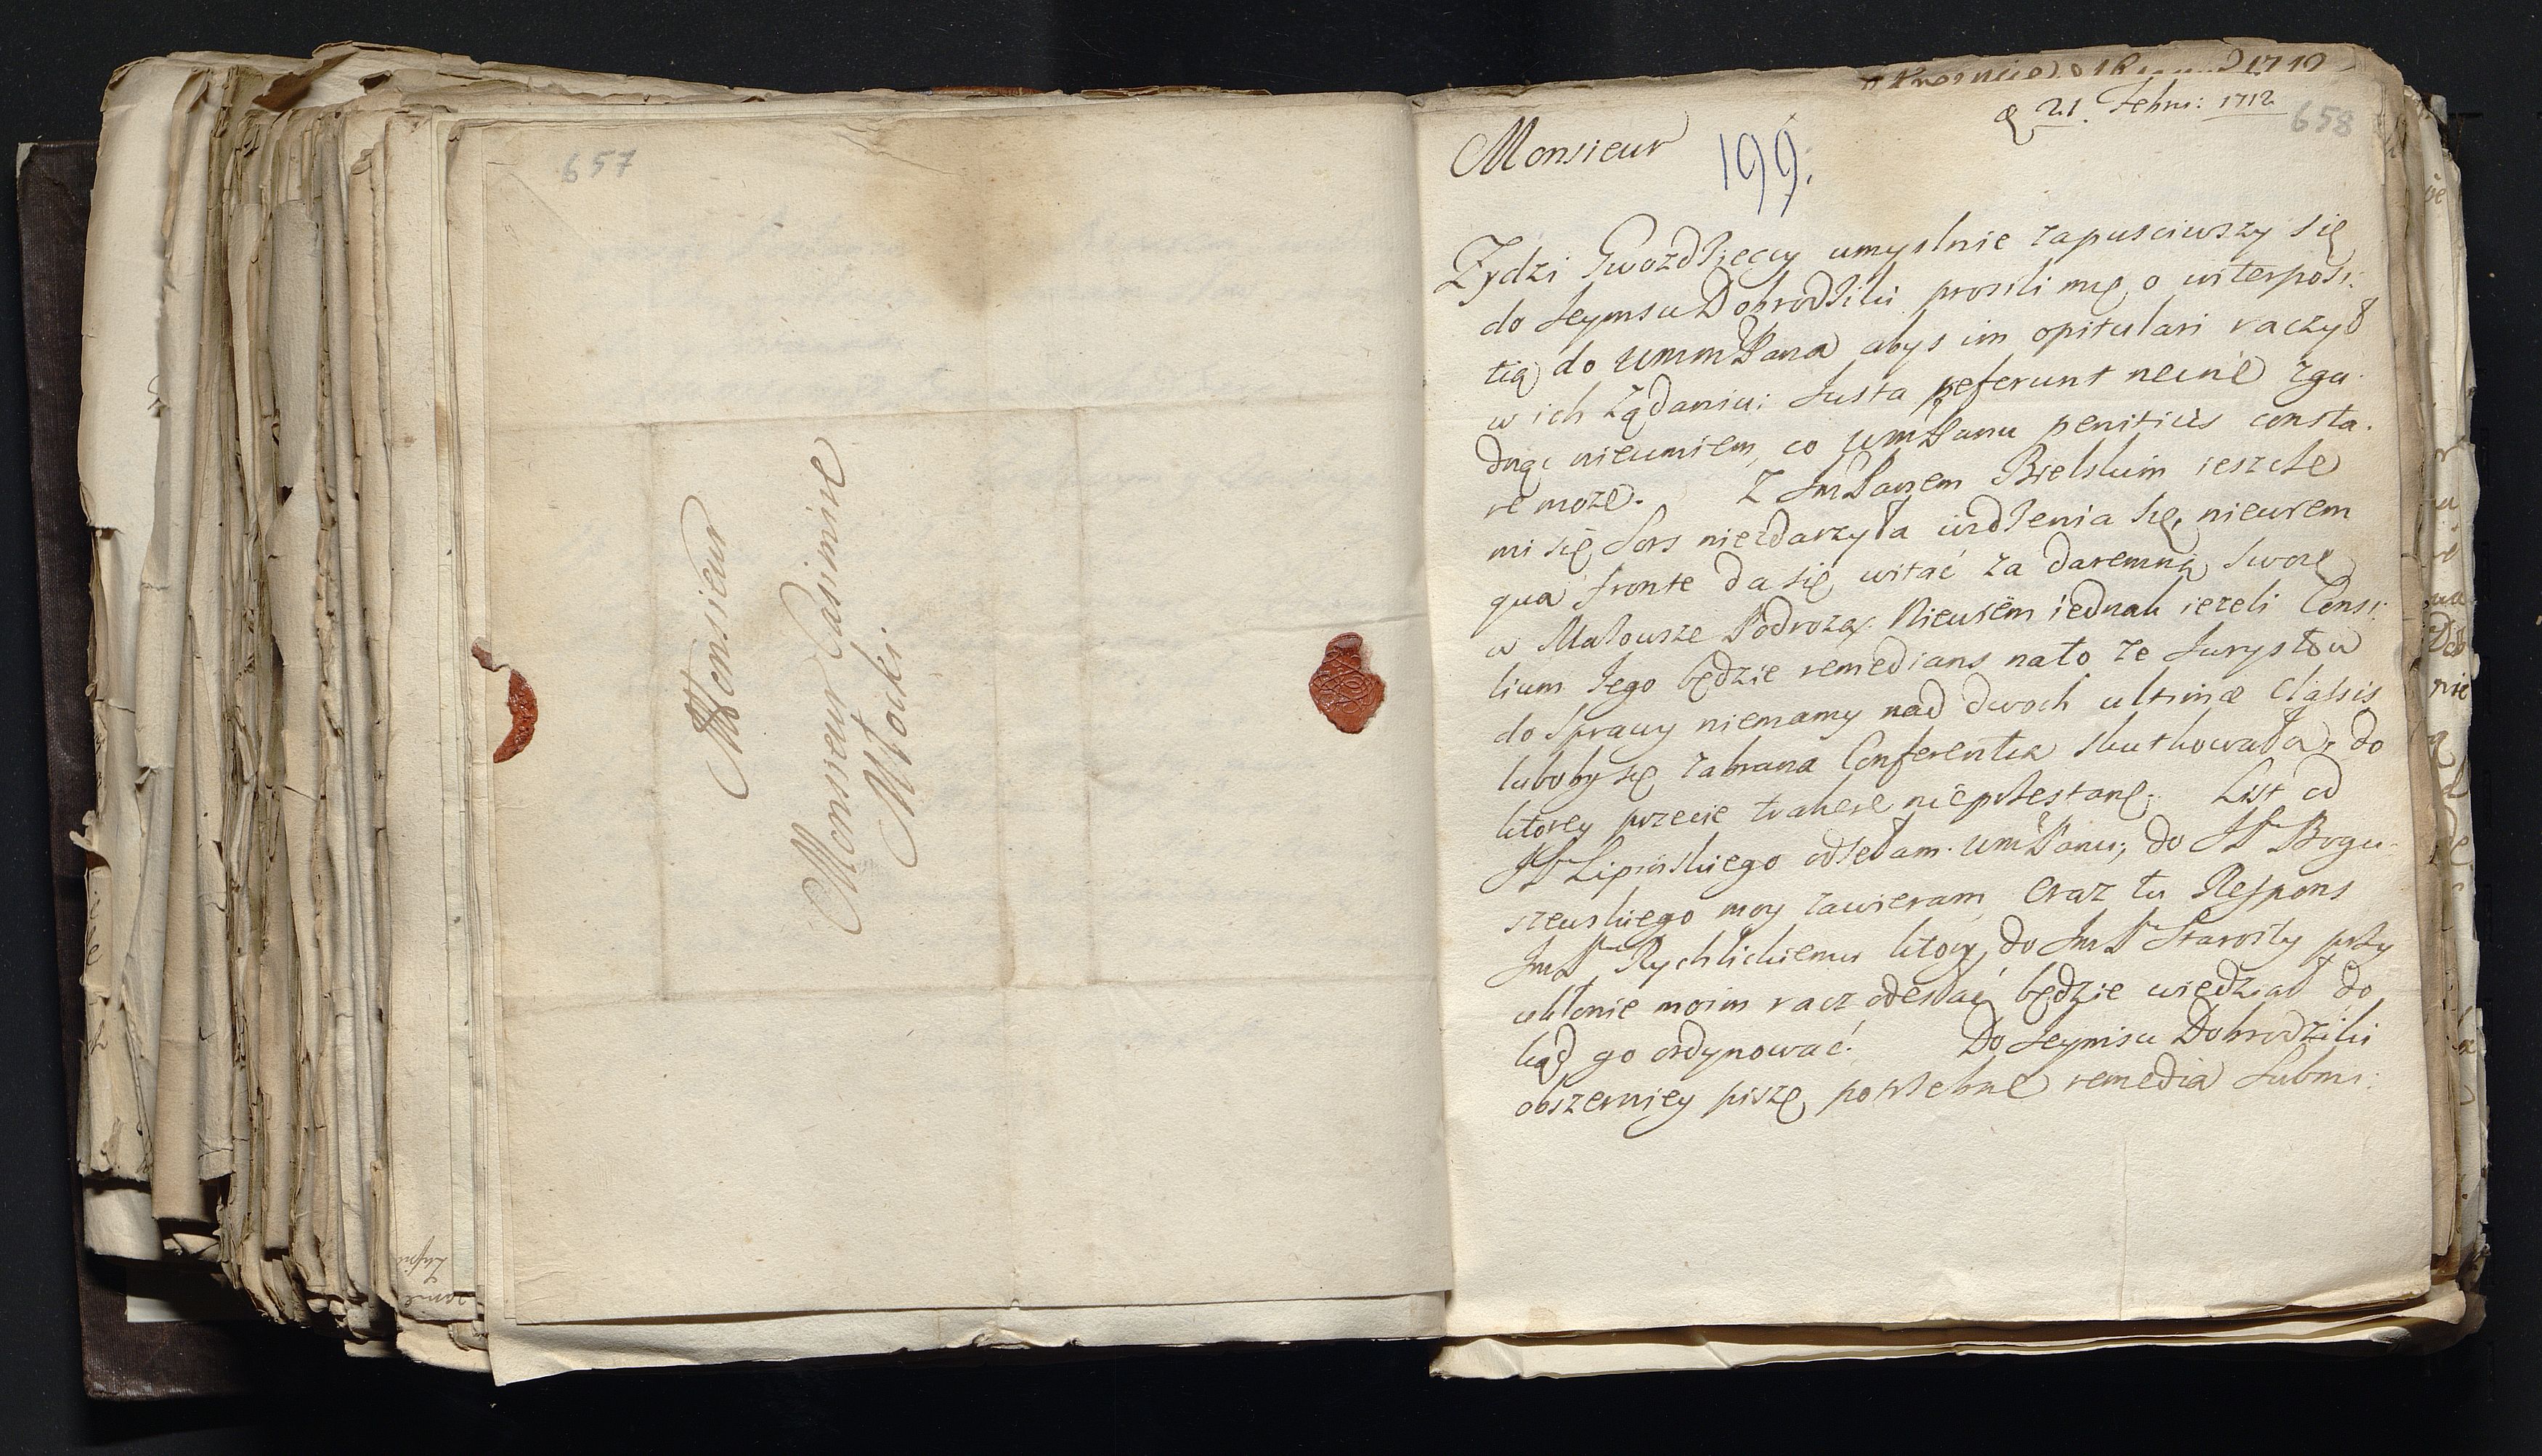 657
Monsieur
Monsieur Casimire
Młocki
1710
d 21. Febru: 1712
658
Monsieur
199.
Zydzi Gwozdzieccy umyslnie zapusciwszy się
do Jeymsci Dobrodziki prosili mię o interposi:
tią do WmmPana abys im opitulari raczył
w ich ządaniu: Justa referunt necne zga-
dnąc nieumiem, co WmPanu penitius consta-
re moze. Z JmPanem Bielskim ieszcze
mi się Sors niezdarzyła widzenia się, niewiem
qua fronte da się witać za daremną Swoię
w Małowsze Podrozą. Niewiem iednak iezeli Consi:
lium Jego będzie remedians nato ze Jurystow
do Sprawy niemamy nad dwoch ultimæ Classis
luboby się zabrana Conferentia skutkowała, do
ktorey przecie trahere nieprzestanę. List od
JP Lipinskiego odsełam WmPanu, do JP Bogu-
szewskiego moy zawieram, Oraz tu Respons
JmP Rychlickiemu ktory do JmP Starosty przy
ukłonie moim racz odesłać, będzie wiedział do
kąd go ordynować. Do Jeymsci Dobrodziki
obszerniey piszę, potrzebne remedia Submi: